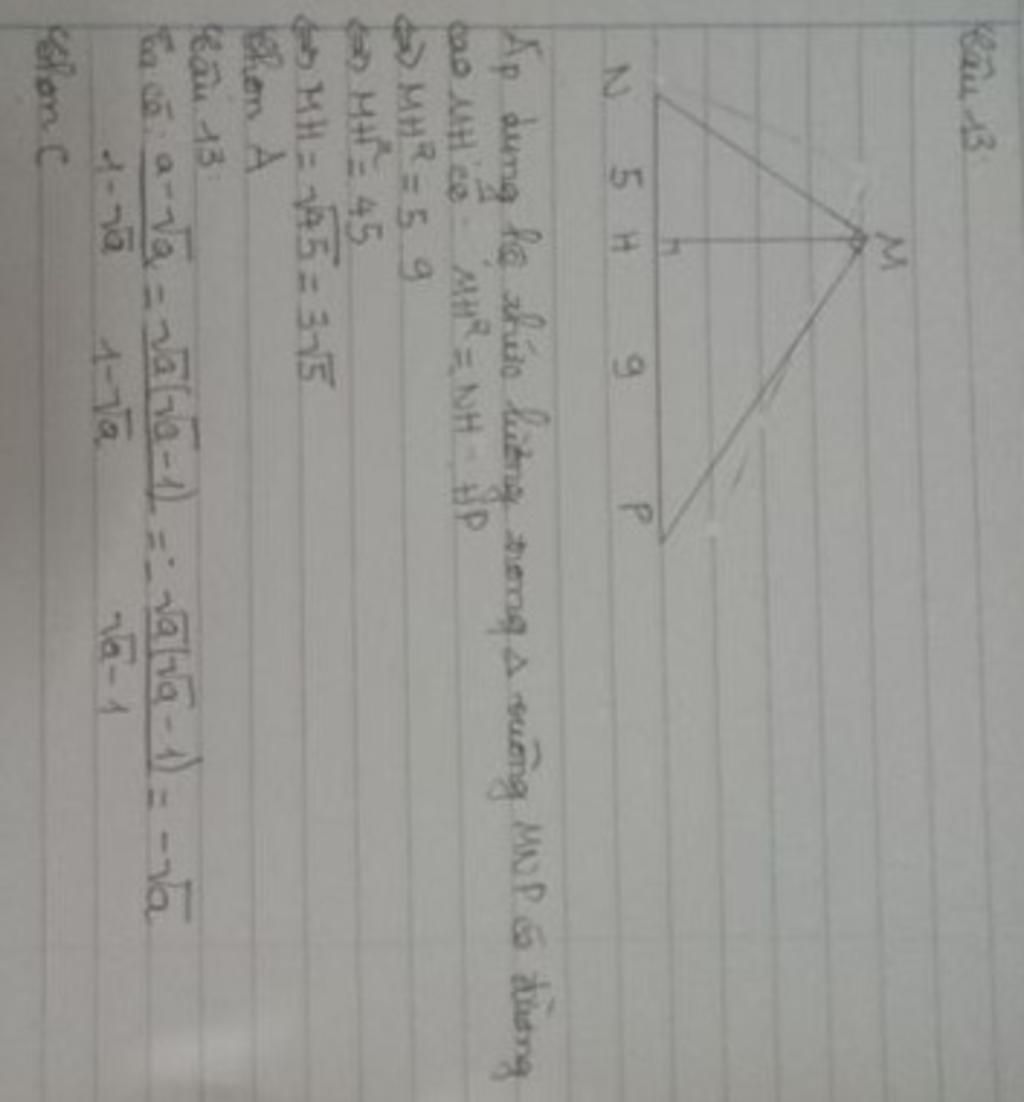 Câu 13:
M
N 5 H 9 P
Áp dụng hệ thức lượng trong Δ vuông MNP có đường
cao MH có: MH² = NH . HP
⇔ MH² = 5.9
⇔ MH² = 45
⇔ MH = √45 = 3√5
Chọn A
Câu 13:
Ta có: a-√a / 1-√a = √a(√a-1) / 1-√a = - √a(√a-1) / √a-1 = -√a
Chọn C